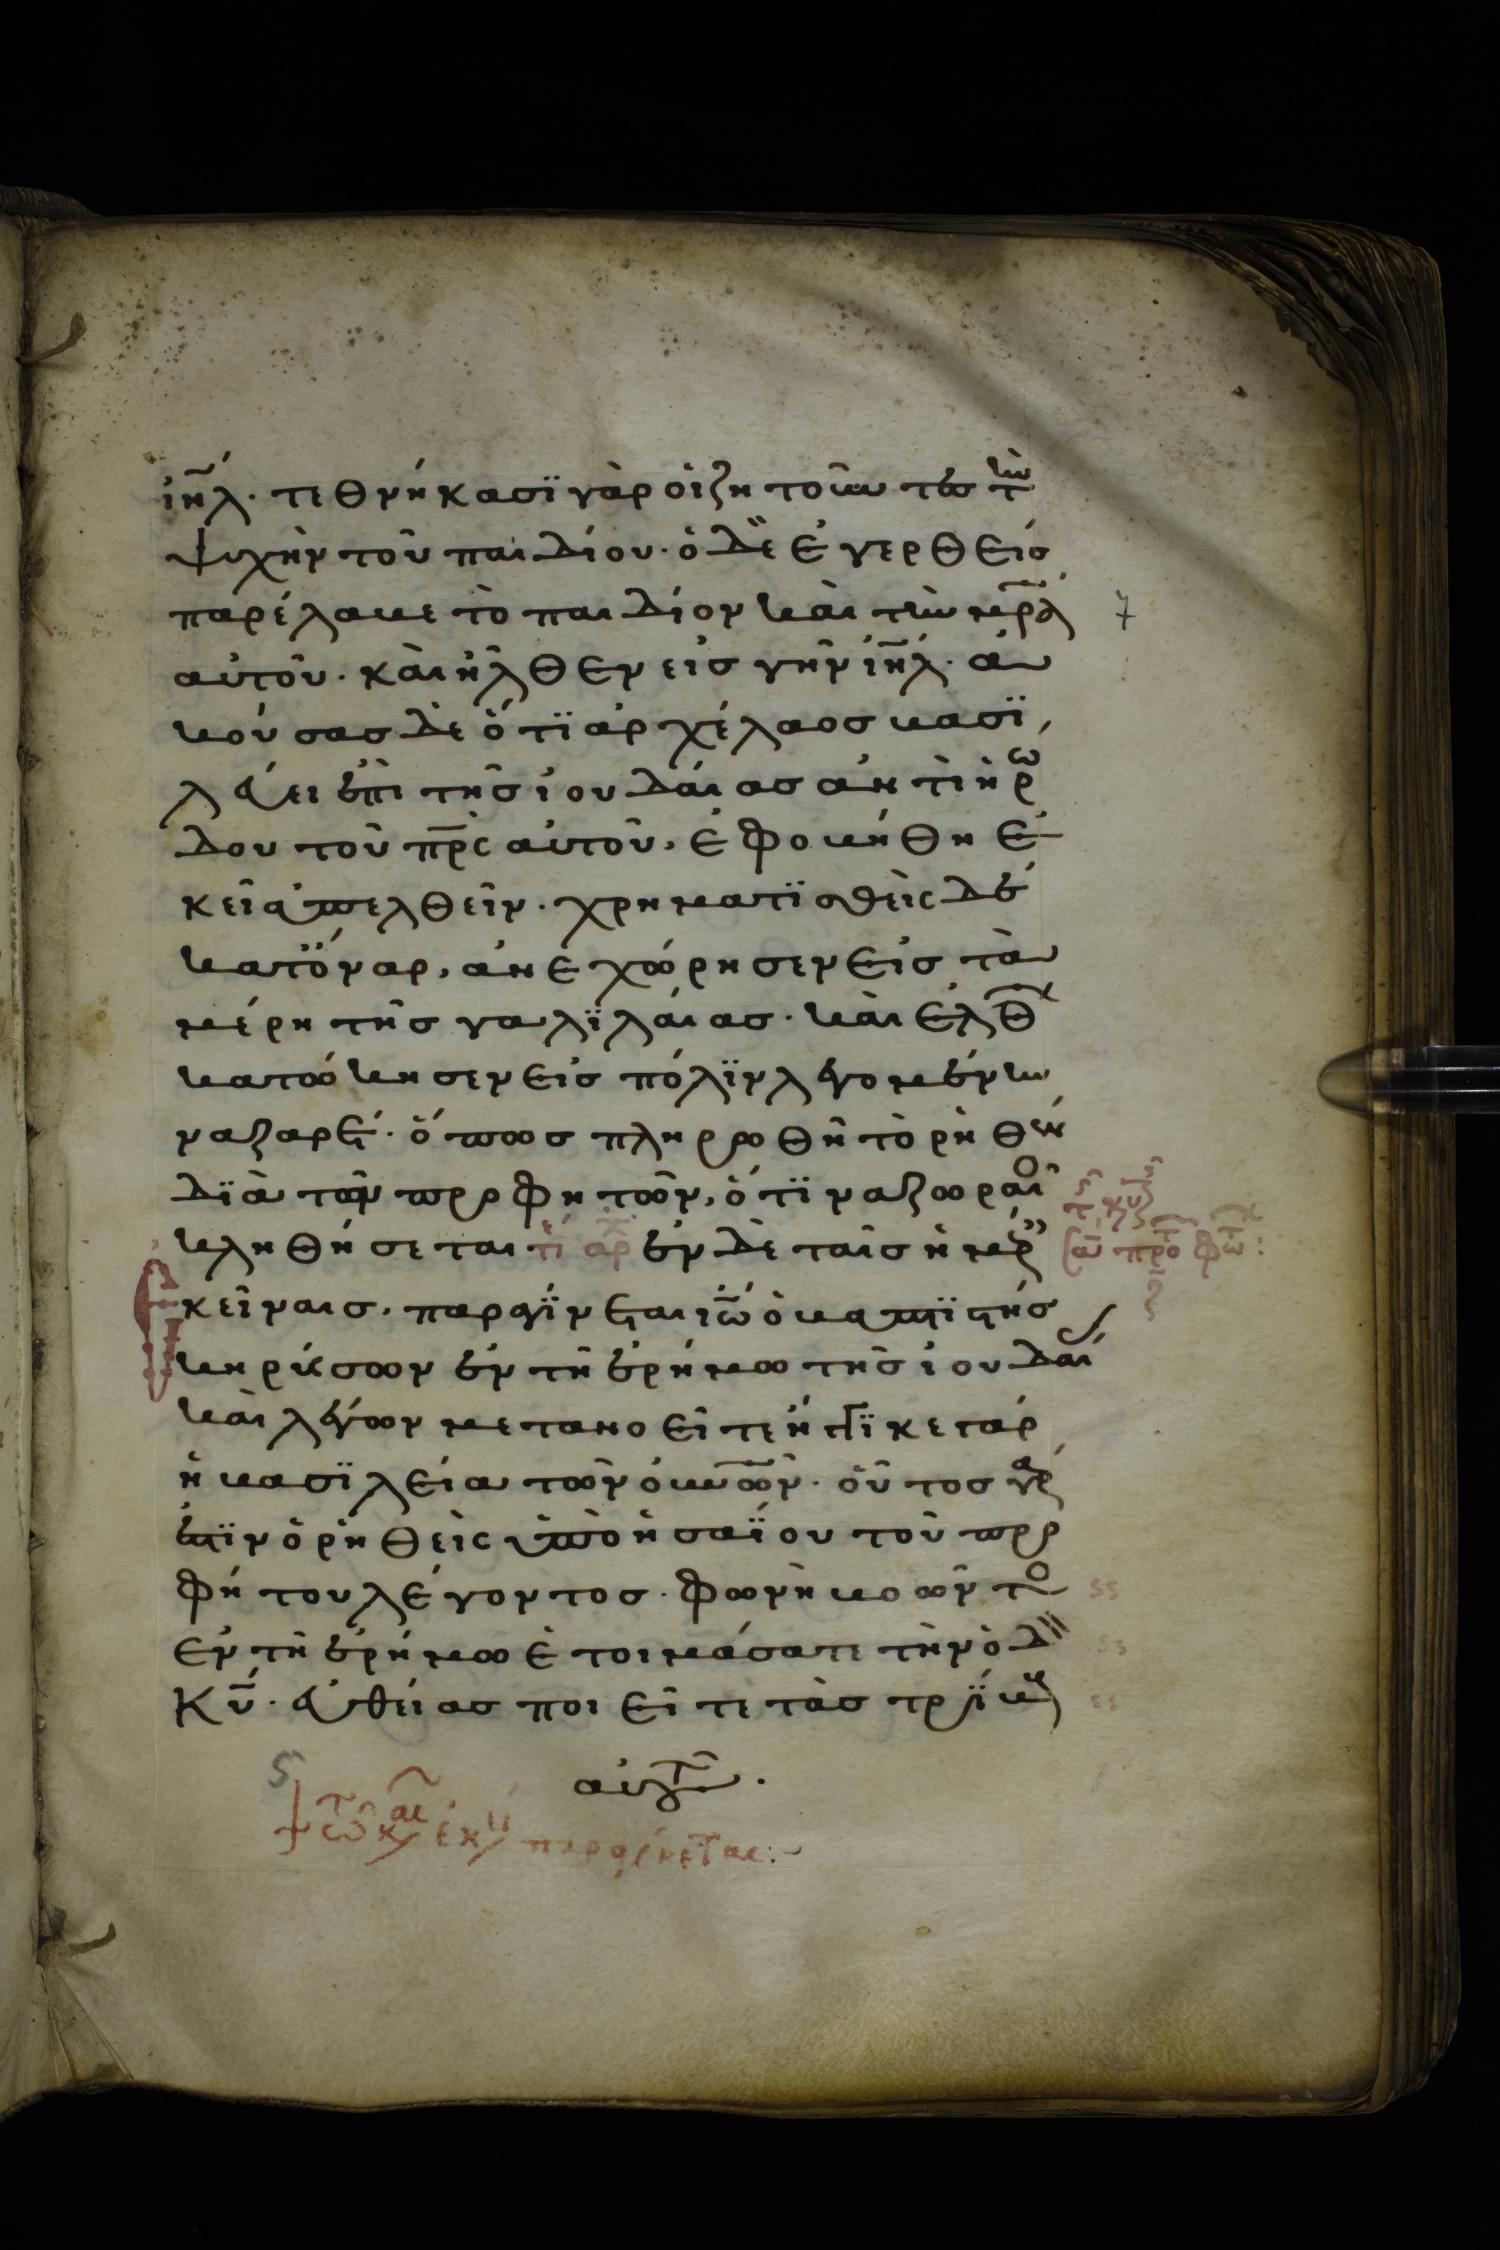 ἰη̅λ· τεθνήκασϊ γὰρ οἱ ζητοῦντες τὴν
ψυχὴν τοῦ παιδίου· ὁ δὲ ἐγερθεὶς
παρέλαβε τὸ παιδίον καὶ τὴν μρ̅α
αὐτοῦ· καὶ ἦλθεν εἰς γῆν ἰη̅λ· ἀ
κούσας δὲ ὅτϊ ἀρχέλαος βασϊ
λεύει ἐπὶ τῆς ἰουδαίας ἀντὶ ἡρώ
δου τοῦ πρ̅ς αὐτοῦ, ἐφοβήθη ἐ
κεῖ ἀπελθεῖν· χρηματϊσθεὶς δὲ
κατ' ὄναρ, ἀνεχώρησεν εἰς τὰ
μέρη τῆς γαλϊλαίας· καὶ ἐλθ
κατώκησεν εἰς πόλϊν λεγομένην
ναζαρέτ· ὅπως πληρωθῆ τὸ ρηθὲν
δϊὰ τῶν προφητῶν, ὅτϊ ναζωραῖο
κληθήσεται τε αρχ ἐν δὲ ταῖς ἡμερ
ἐκείναις, παραγϊνεται ἰω̅ ὁ βαπτϊστὴς
κηρύσσων ἐν τῆ ἐρήμω τῆς ἰουδαί
καὶ λέγων μετανοεῖτε ἤγγϊκε γὰρ
ἡ βασϊλεία τῶν οὐν̅ων· οὗτος γάρ
ἐστϊν ὁ ρηθεὶς ὑπὸ ἡσαϊου τοῦ προ
φήτου λέγοντος· φωνὴ βοῶντο
ἐν τῆ ἐρήμω ἑτοιμάσατε τὴν ὁδ
κυ̅· εὐθείας ποιεῖτε τὰς τρϊβ
αὐτ·